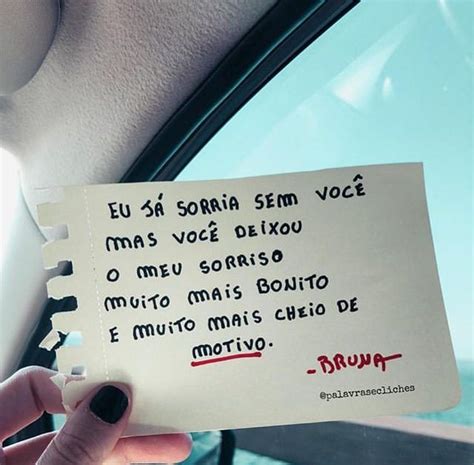 EU JÁ SORRIA SEM VOCÊ
MAS VOCÊ DEIXOU
O MEU SORRISO
MUITO MAIS BONITO
E MUITO MAIS CHEIO DE
MOTIVO.
-BRUNA
@palavrasecliches